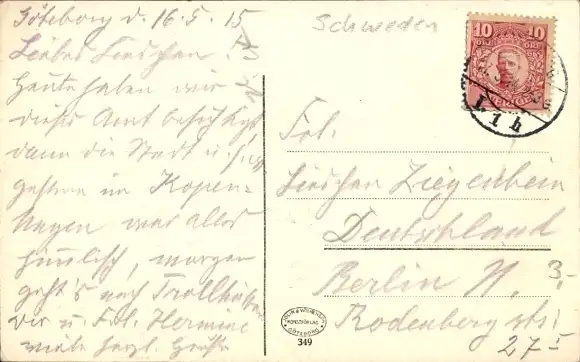 Göteborg d. 16.5.15
Liebes Lieschen!
Heute haben wir
dieses Amt besichtigt
dann die Stadt u.
gestern in Kopen-
hagen war alles
herrlich, morgen
geht's nach Trollhättan
Wir u. Frl. Hermine
herzl. Grüße
Schweden
10 10
SVERIGE
Frl.
Lieschen Ziegenbein
Deutschland
Berlin N. 3.-
Rodenbergstr.
27 5
GÖTEBORG
349